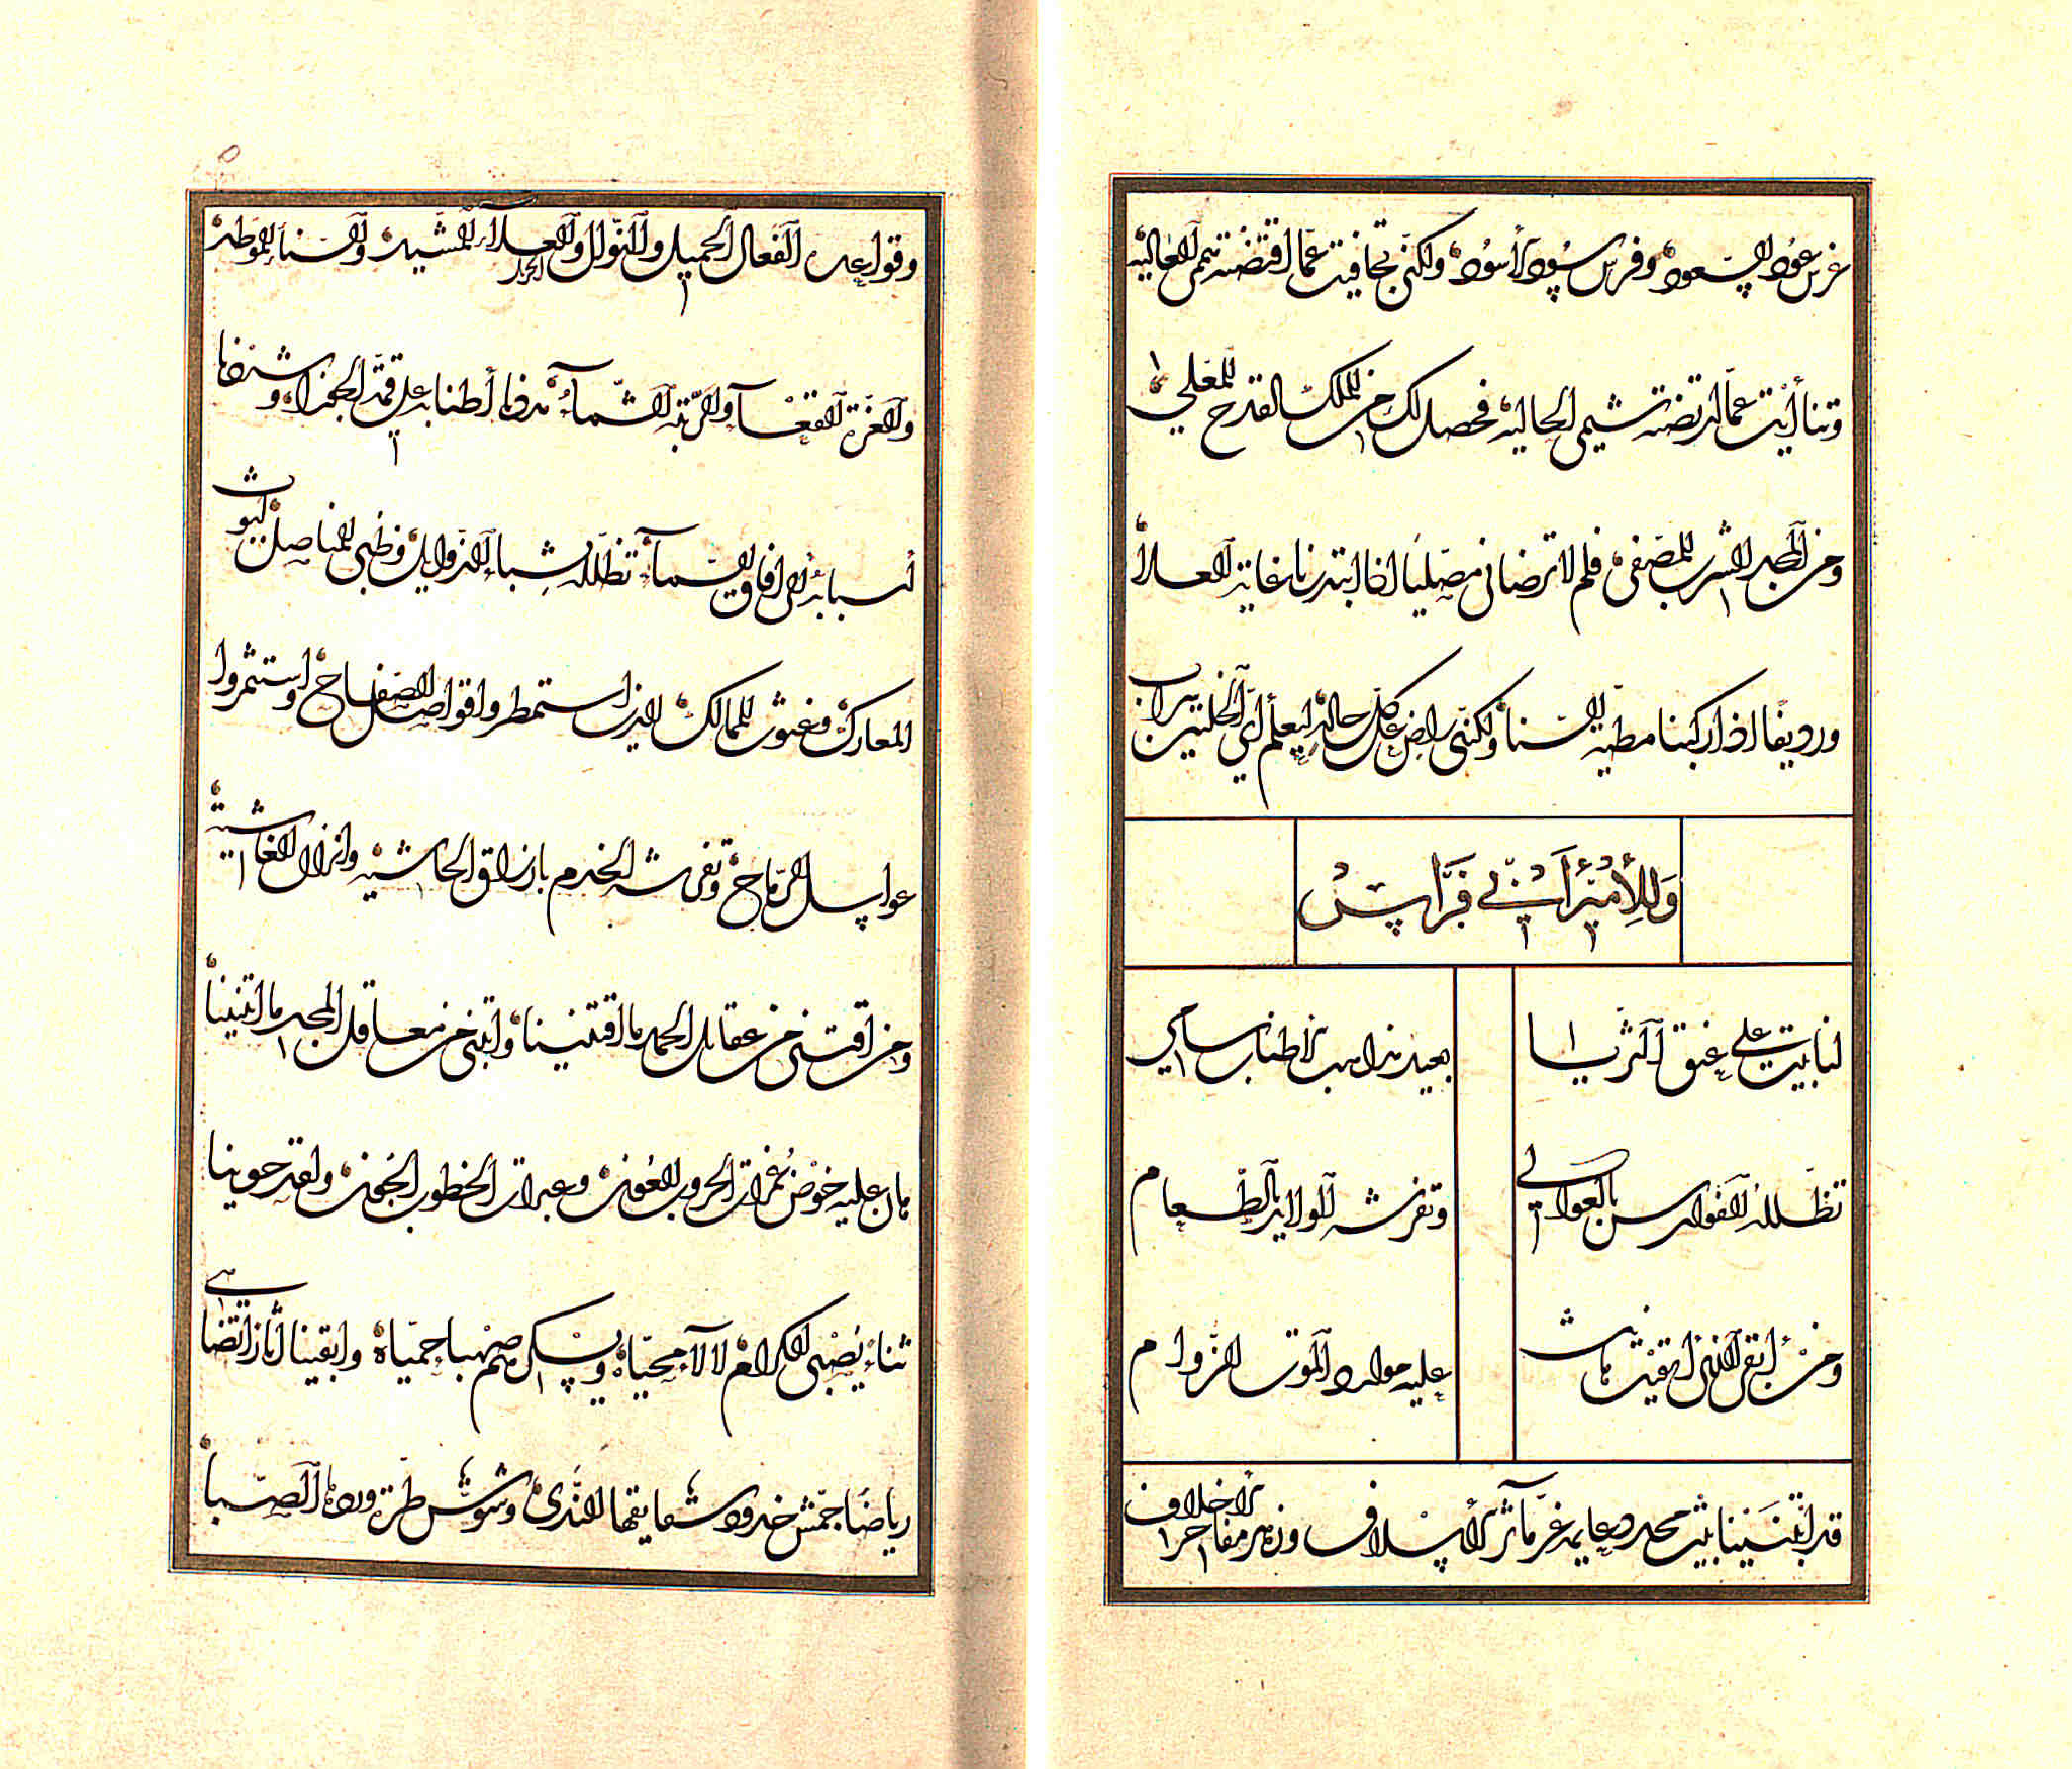 غرس عود السعود وفرس سود الأسود ولكني تجافيت عما اقتضته هممي العالية
وتناأيت عما ارتضته شيمي الحالية فحصل لك من الملك القدح المعلى
ومن المجد الشرب المصفى فلم لا ترضاني مصليا اذا ابتدرنا غاية العلا
ورديفا اذا ركبنا مطية السنا ولكنني راض على كل حالة ليعلم أي الخلتين سراب
وللأمير أبي فراس
لنا بيت على عنق الثريا
بعيد مذاهب الأطناب سامي
تظلله الفوارس بالعوالي
وتفرشه الولائد بالطعام
ومن أبقى الذي أبقيت هانت
عليه موارد الموت الزؤام
قد ابتنينا بيت مجد دعايمه غر مآثر الأسلاف وزهر مفاخر الأخلاف
وقواعده الفعال الجميل والنوال والعلاء المشيد والسناء الموطد
والعزة القعسآء والرتبة الشمآء مدت أطنابه على قمة الجوزاء وشنفا
أسبابه الى آفاق السمآء تظلله شبا الذوابل وظبى المناصل ليوث
المعارك وغيوث الممالك الذين استمطروا قواصل الصفاح واستثمروا
عواسل الرماح وتفرشه الخدم بارزاق الحاشية وانزال الغاشية
ومن اقتنى من عقايل الحمد ما اقتنينا وابتنى من معاقل المجد ما ابتنينا
هان عليه خوض غمرات الحروب العون وعبرات الخطوب الجون ولقد حوينا
ثناء يصبي الكرام لالآء محياه ويسكرهم صهبا حمياه وابقينا آثارا تضاهي
رياضا جمش خدود شقايقها الندى وشوش طرة وردها الصبا